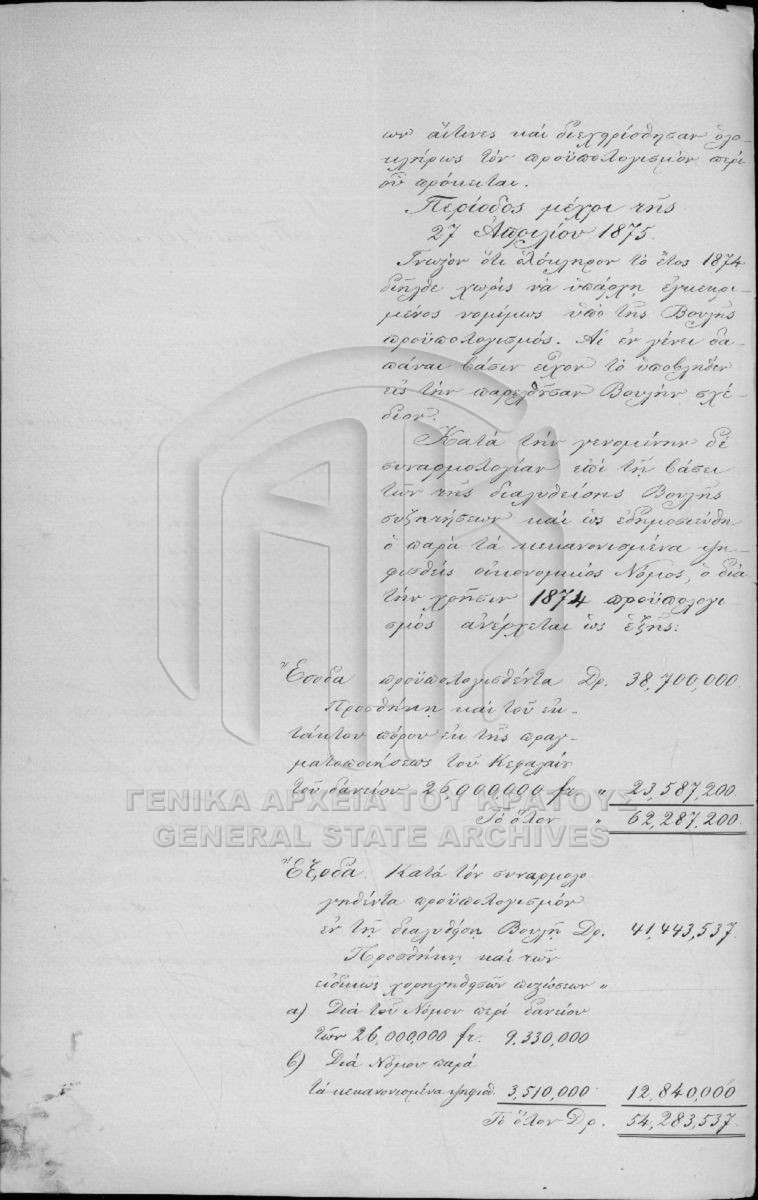 ων αἵτινες καὶ διεχειρίσθησαν ὁλο-
κλήρως τὸν προϋπολογισμὸν περὶ
οὗ πρόκειται.
Περίοδος μέχρι τῆς
27 Ἀπριλίου 1875.
Γνωστὸν ὅτι ὁλόκληρον τὸ ἔτος 1874
διῆλθε χωρὶς νὰ ὑπάρχῃ ἐγκεκρι-
μένος νομίμως ὑπὸ τῆς Βουλῆς
προϋπολογισμός. Αἱ ἐν γένει δα-
πάναι βάσιν εἶχον τὸ ὑποβληθὲν
εἰς τὴν παρελθοῦσαν Βουλὴν σχέ-
διον.
Κατὰ τὴν γενομένην δὲ
συναρμολογίαν ἐπὶ τῇ βάσει
τῶν τῆς διαλυθείσης Βουλῆς
συζητήσεων καὶ ὡς ἐδημοσιεύθη
ὁ παρὰ τὰ κεκανονισμένα ψη-
φισθεὶς οἰκονομικὸς Νόμος, ὁ διὰ
τὴν χρῆσιν 1874 προϋπολογι
σμὸς ἀνέρχεται ὡς ἑξῆς:
Ἔσοδα προϋπολογισθέντα Δρ. 38,700,000.
Προσθήκῃ καὶ τοῦ ἐκ-
τάκτου πόρου ἐκ τῆς πραγ-
ματοποιήσεως τοῦ Κεφαλαίου
τοῦ δανείου 26,000,000 fr. " 23,587,200.
Τὸ ὅλον " 62,287,200.
Ἔξοδα. Κατὰ τὸν συναρμολο
γηθέντα προϋπολογισμὸν
ἐν τῇ διαλυθείσῃ Βουλῇ Δρ. 41,443,537.
Προσθήκῃ καὶ τῶν
εἰδικῶς χορηγηθεισῶν πιστώσεων "
α) Διὰ τοῦ Νόμου περὶ δανείου
τῶν 26,000,000 fr. 9,330,000
β) Διὰ Νόμου παρὰ
τὰ κεκανονισμένα ψηφισθ. 3,510,000 12,840,000
Τὸ ὅλον Δρ. 54,283,537.
ΓΕΝΙΚΑ ΑΡΧΕΙΑ ΤΟΥ ΚΡΑΤΟΥΣ
GENERAL STATE ARCHIVES